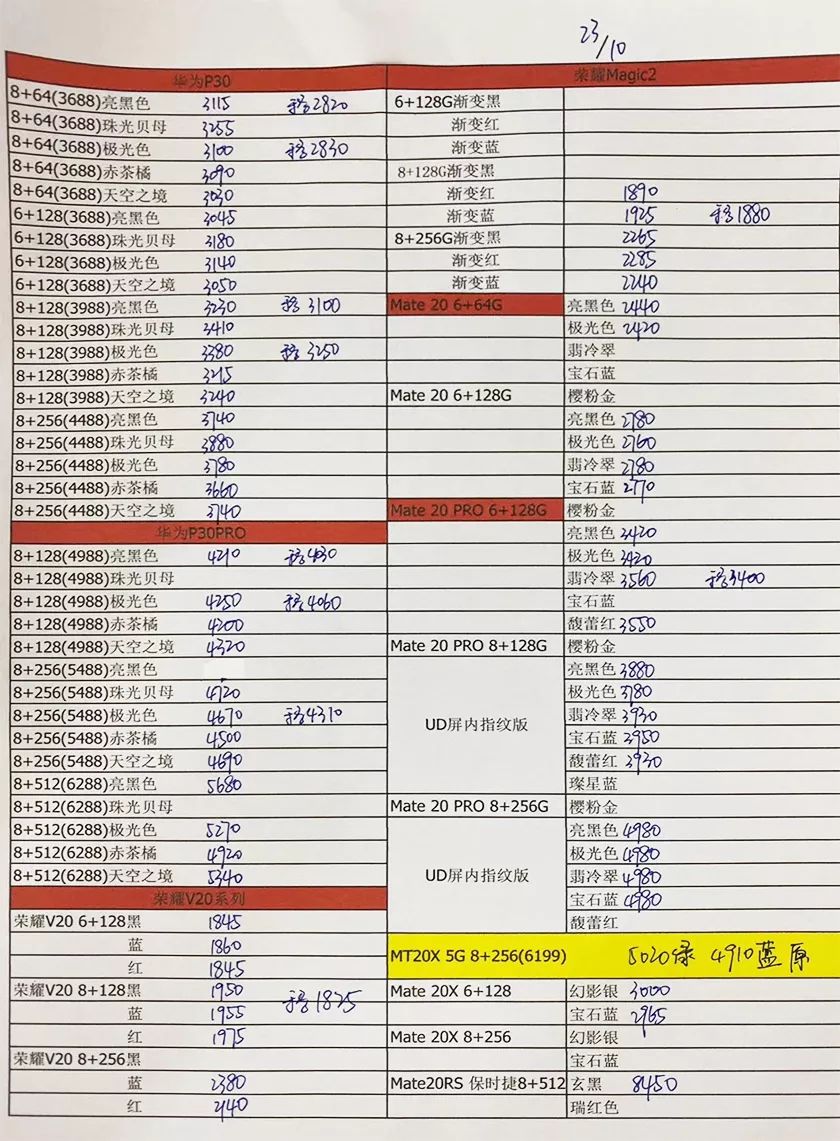 23/10
华为P30
8+64(3688)亮黑色 3115 移2820
8+64(3688)珠光贝母 3255
8+64(3688)极光色 3100 移2830
8+64(3688)赤茶橘 3090
8+64(3688)天空之境 3030
6+128(3688)亮黑色 3045
6+128(3688)珠光贝母 3180
6+128(3688)极光色 3140
6+128(3688)天空之境 3050
8+128(3988)亮黑色 3230 移3100
8+128(3988)珠光贝母 3410
8+128(3988)极光色 3380 移3250
8+128(3988)赤茶橘 3215
8+128(3988)天空之境 3240
8+256(4488)亮黑色 3740
8+256(4488)珠光贝母 3880
8+256(4488)极光色 3780
8+256(4488)赤茶橘 3660
8+256(4488)天空之境 3740
华为P30PRO
8+128(4988)亮黑色 4210 移4030
8+128(4988)珠光贝母
8+128(4988)极光色 4250 移4060
8+128(4988)赤茶橘 4200
8+128(4988)天空之境 4320
8+256(5488)亮黑色
8+256(5488)珠光贝母 4720
8+256(5488)极光色 4670 移4310
8+256(5488)赤茶橘 4500
8+256(5488)天空之境 4690
8+512(6288)亮黑色 5680
8+512(6288)珠光贝母
8+512(6288)极光色 5270
8+512(6288)赤茶橘 4920
8+512(6288)天空之境 5340
荣耀V20系列
荣耀V20 6+128黑 1845
蓝 1860
红 1845
荣耀V20 8+128黑 1950
蓝 1955 移1825
红 1975
荣耀V20 8+256黑
蓝 2380
红 2140
荣耀Magic2
6+128G渐变黑
渐变红
渐变蓝
8+128G渐变黑
渐变红 1890
渐变蓝 1925 移1880
8+256G渐变黑 2265
渐变红 2285
渐变蓝 2240
Mate 20 6+64G 亮黑色 2440
极光色 2420
翡冷翠
宝石蓝
Mate 20 6+128G 樱粉金
亮黑色 2780
极光色 2760
翡冷翠 2780
宝石蓝 2770
Mate 20 PRO 6+128G 樱粉金
亮黑色 3420
极光色 3420
翡冷翠 3560 移3400
宝石蓝
馥蕾红 3550
Mate 20 PRO 8+128G 樱粉金
UD屏内指纹版
亮黑色 3880
极光色 3780
翡冷翠 3930
宝石蓝 3950
馥蕾红 3930
璨星蓝
Mate 20 PRO 8+256G 樱粉金
UD屏内指纹版
亮黑色 4980
极光色 4980
翡冷翠 4980
宝石蓝 4980
馥蕾红
MT20X 5G 8+256(6199) 5020绿 4910蓝 原
Mate 20X 6+128 幻影银 3000
宝石蓝 2965
Mate 20X 8+256 幻影银
宝石蓝
Mate20RS 保时捷8+512 玄黑 8450
瑞红色